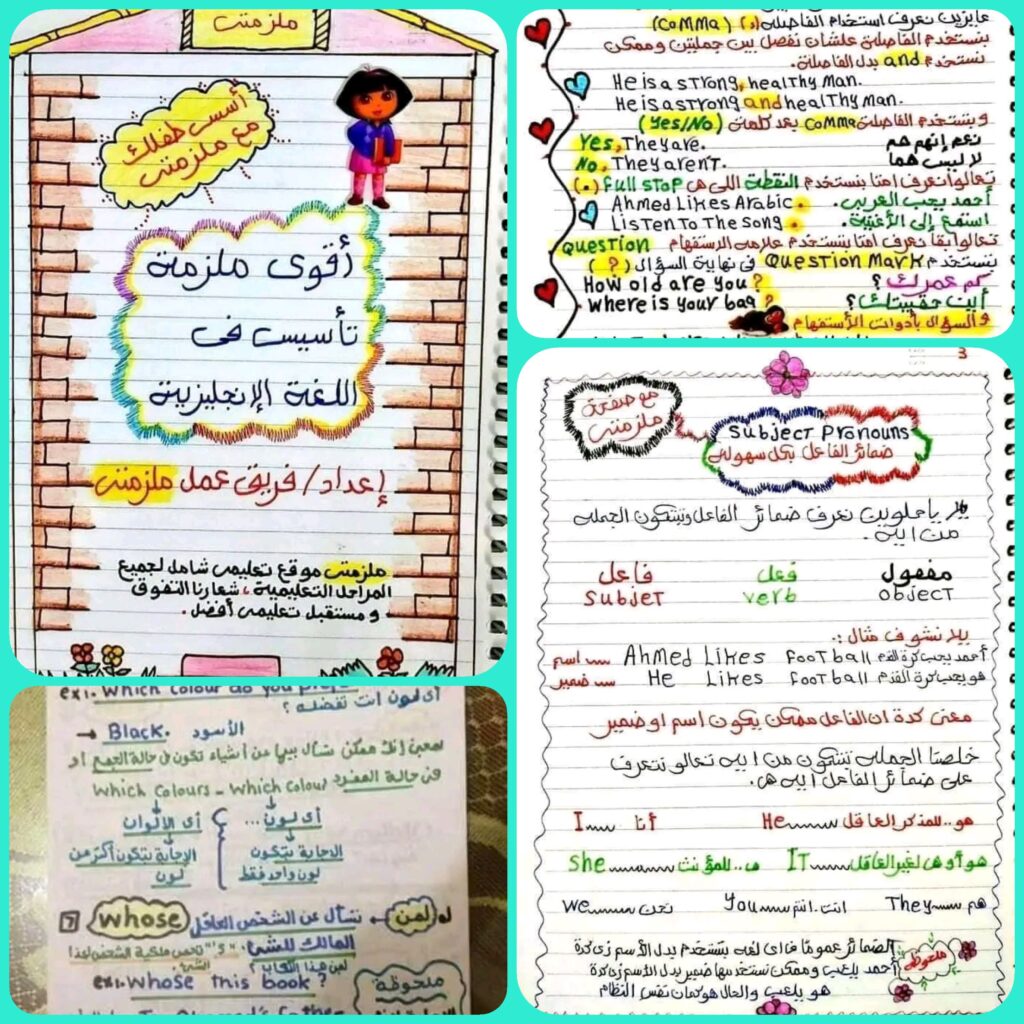 ملزمتى
أسس طفلك
مع ملزمتى
أقوى ملزمة
تأسيس فى
اللغة الإنجليزية
إعداد/فريق عمل ملزمتى
ملزمتى موقع تعليمى شامل لجميع
المراحل التعليمية، شعارنا التفوق
ومستقبل تعليمى أفضل.
عايزين نعرف استخدام الفاصلة (,) (comma)
بنستخدم الفاصلة علشان نفصل بين جملتين وممكن
نستخدم and بدل الفاصلة.
He is a strong, healthy man.
He is a strong and healthy man.
وبنستخدم الفاصلة comma بعد كلمة (Yes/No)
Yes, They are. نعم إنهم هم
No, They aren't. لا ليس هما
تعالوا نعرف امتا بنستخدم النقطة اللى هى full stop (.)
Ahmed Likes Arabic. أحمد يحب العربى.
Listen To The song. استمع إلى الأغنية
تعالوا بقا نعرف امتا بنستخدم علامه الاستفهام Question
بنستخدم Question Mark فى نهاية السؤال (?)
How old are you? كم عمرك؟
where is your bag? أين حقيبتك؟
والسؤال بأدوات الأستفهام
3
مع صفحة
ملزمتى
Subject Pronouns
ضمائر الفاعل بكل سهولى
يلا ياحلوين نعرف ضمائر الفاعل وبتتكون الجمله
من اية.
فاعل فعل مفعول
Subjet verb object
يلا نشوف مثال:
أحمد يحب كرة القدم Ahmed Likes football اسم
هو يحب كرة القدم He Likes football ضمير
معنى كدة ان الفاعل ممكن يكون اسم او ضمير
خلصنا الجمله بتتكون من ايه تعالو نتعرف
على ضمائر الفاعل ايه هى.
I أنا He هو..للمذكر العاقل
She هى..للمؤنث IT هو أو هى لغير العاقل
we نحن You انت.انتم They هم
ملحوظه
الضمائر عمومًا فى اى لغه بتستخدم بدل الأسم زى كرة
أحمد يلعب وممكن نستخدمها ضمير بدل الأسم زى كرة
هو يلعب والحال هو كمان نفس النظام
ex1. Which colour do you
أى لون انت تفضله؟
→ Black. الأسود
ممكن نسأل بيها عن أشياء تكون فى حالة الجمع او
فى حالة المفرد which colours - which colour
أى لون... أى الألوان
الاجابة بتكون الإجابة بتكون أكثر من
لون واحد فقط لون
7 whose لمن نسأل عن الشخص العاقل
المالك للشئ
لمن هذا الكتاب؟
ex1. Whose this book?
ملحوظة